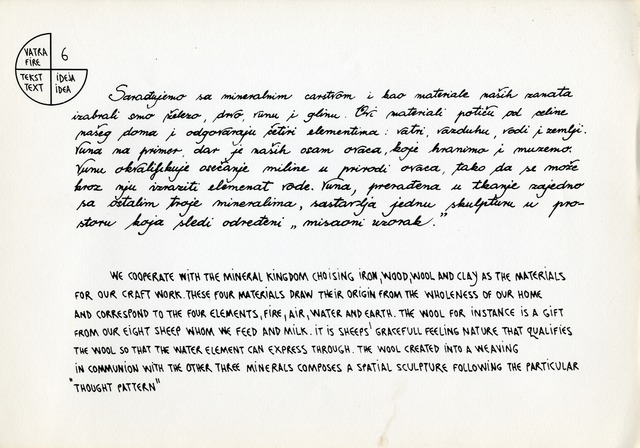 VATRA
FIRE
6
TEKST
TEXT
IDEJA
IDEA
Sarađujemo sa mineralnim carstvom i kao materiale naših zanata
izabrali smo železo, drvo, vunu i glinu. Ovi materiali potiču od celine
našeg doma i odgovaraju četiri elementima: vatri, vazduhu, vodi i zemlji.
Vuna na primer, dar je naših osam ovaca, koje hranimo i muzemo.
Vunu okvalifikuje osećanje miline u prirodi ovaca, tako da se može
kroz nju izraziti elemenat vode. Vuna, prerađena u tkanje zajedno
sa ostalim troje mineralima, sastavlja jednu skulpturu u pro-
storu koja sledi određeni „misaoni uzorak."
WE COOPERATE WITH THE MINERAL KINGDOM CHOISING IRON, WOOD, WOOL AND CLAY AS THE MATERIALS
FOR OUR CRAFT WORK. THESE FOUR MATERIALS DRAW THEIR ORIGIN FROM THE WHOLENESS OF OUR HOME
AND CORRESPOND TO THE FOUR ELEMENTS, FIRE, AIR, WATER AND EARTH. THE WOOL FOR INSTANCE IS A GIFT
FROM OUR EIGHT SHEEP WHOM WE FEED AND MILK. IT IS SHEEPS' GRACEFULL FEELING NATURE THAT QUALIFIES
THE WOOL SO THAT THE WATER ELEMENT CAN EXPRESS THROUGH. THE WOOL CREATED INTO A WEAVING
IN COMMUNION WITH THE OTHER THREE MINERALS COMPOSES A SPATIAL SCULPTURE FOLLOWING THE PARTICULAR
"THOUGHT PATTERN"